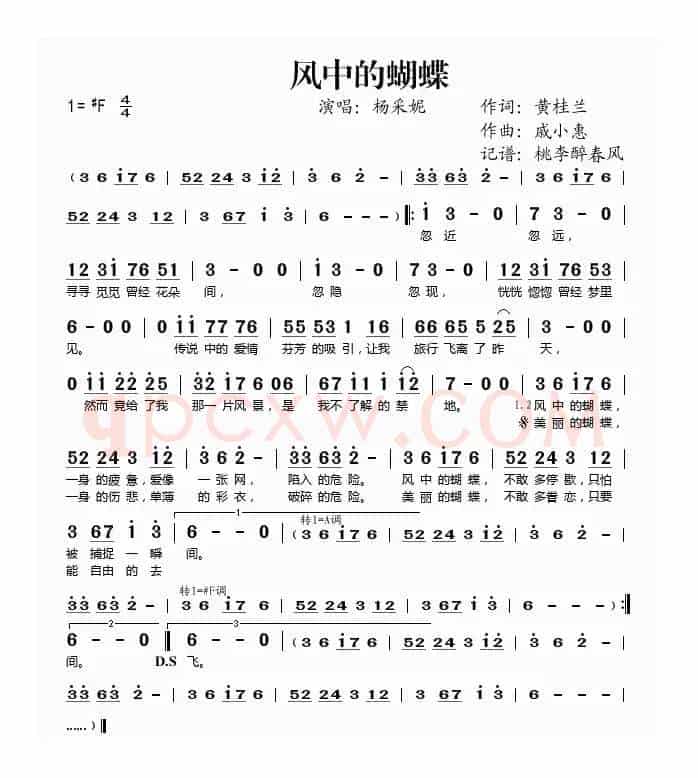 风中的蝴蝶
1=♯F 4/4 演唱：杨采妮 作词：黄桂兰
作曲：戚小惠
记谱：桃李醉春风
( 3 6 i̇ 7 6 | 52 24 3 i̇2̇ | 3̇ 6 2̇ - | 3̇3̇ 63̇ 2̇ - | 3 6 i̇ 7 6 |
52 24 3 12 | 3 67 i̇ 3̇ | 6 - - - ) ‖: i̇ 3 - 0 | 7 3 - 0 |
忽 近 忽 远，
12 3i̇ 76 51 | 3 - 0 0 | i̇ 3 - 0 | 7 3 - 0 | 12 3i̇ 76 53 |
寻寻 觅觅 曾经 花朵 间， 忽 隐 忽 现， 恍恍 惚惚 曾经 梦里
6 - 0 0 | 0 i̇i̇ 77 76 | 55 53 1 16 | 66 65 5 25 | 3 - - 0 |
见。 传说 中的 爱情 芬芳 的吸 引，让我 旅行 飞离 了 昨 天，
0 i̇i̇ 2̇2̇ 25 | 3̇2̇ i̇7 6 06 | 6 i̇ i̇ i̇2̇ | 7 - 0 0 | 3 6 i̇7 6 |
然而 竟给 了我 那一 片风 景，是 我不 了解 的 禁 地。 1.2风 中 的蝴 蝶，
𝄋 美 丽 的蝴 蝶，
52 24 3 i̇2̇ | 3̇ 6 2̇ - | 3̇3̇ 63̇ 2̇ - | 3 6 i̇7 6 | 52 24 3 i̇2̇ |
一身 的疲 惫，爱像 一 张 网， 陷入 的危 险。 风 中 的蝴 蝶， 不敢 多停 歇，只怕
一身 的伤 悲，单薄 的 彩 衣， 破碎 的危 险。 美 丽 的蝴 蝶， 不敢 多眷 恋，只要
1 转1=A调
3 67 i̇ 3̇ | 6 - - 0 | ( 3 6 i̇ 7 6 | 52 24 3 i̇2̇ | 3̇ 6 2̇ - |
被 捕捉 一 瞬 间。
能 自由 的 去
转1=#F调
3̇3̇ 63̇ 2̇ - | 3 6 i̇7 6 | 52 24 3 12 | 3 67 i̇ 3̇ | 6 - - - ) :‖
2 3
6 - - 0 ‖ 6 - - 0 | ( 3 6 i̇ 7 6 | 52 24 3 i̇2̇ | 3̇ 6 2̇ - |
间。 D.S 飞。
3̇3̇ 63̇ 2̇ - | 3 6 i̇ 7 6 | 52 24 3 12 | 3 67 i̇ 3̇ | 6 - - - |
…… ) ‖
qpcxw.com